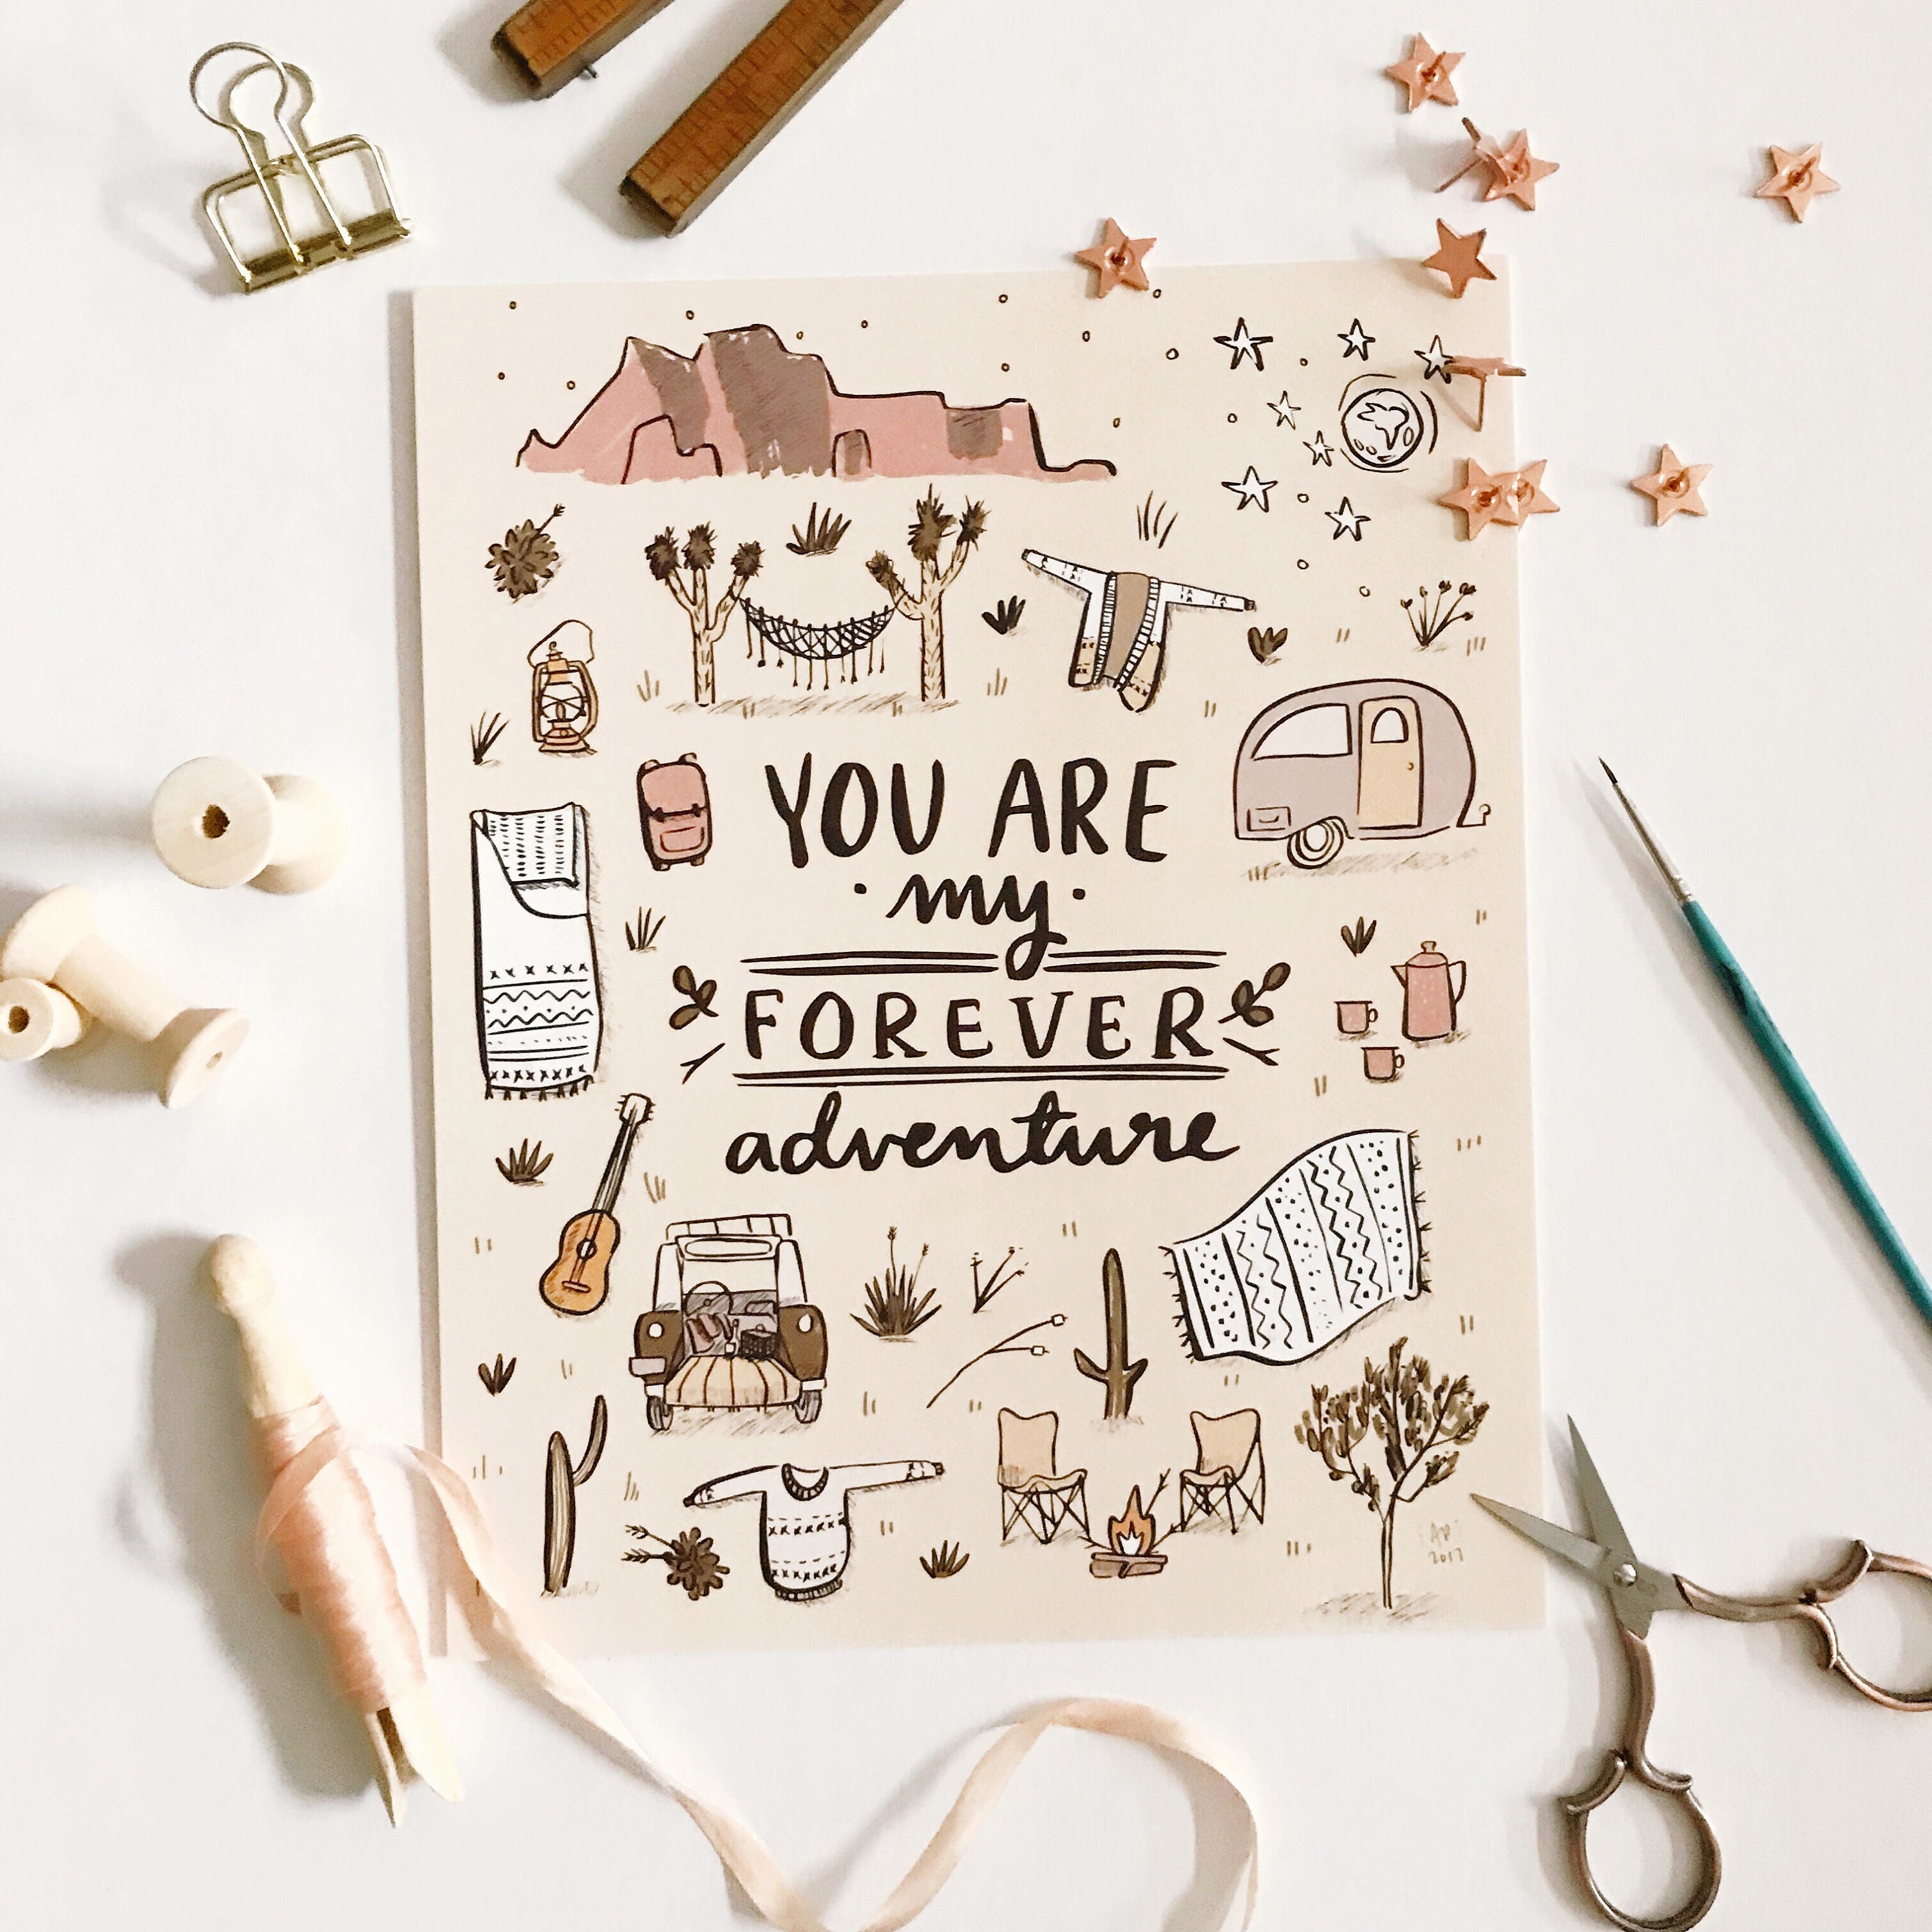 YOU ARE
·my·
FOREVER
adventure
AP
2017